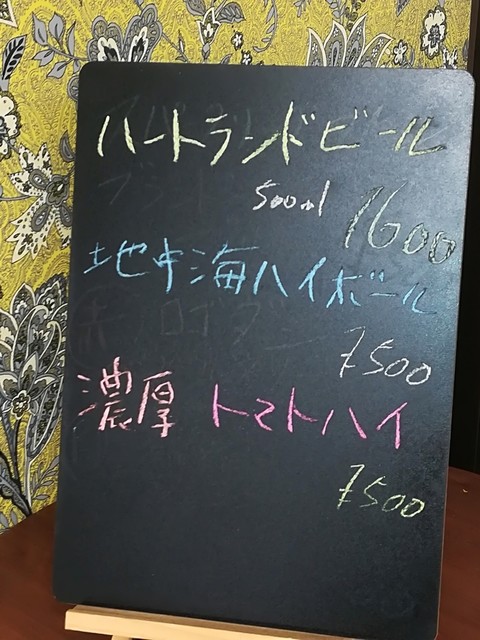 ハートランドビール
500ml
¥600
地中海ハイボール
¥500
濃厚 トマトハイ
¥500